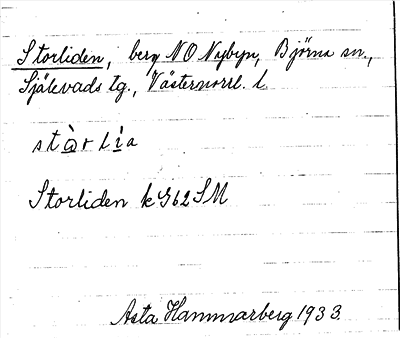 Storliden, berg NO Nybyn, Björna sn.,
Själevads tg., Västernorrl. l.
stàrlìa
Storliden k G62SM
Asta Hammarberg 1933.